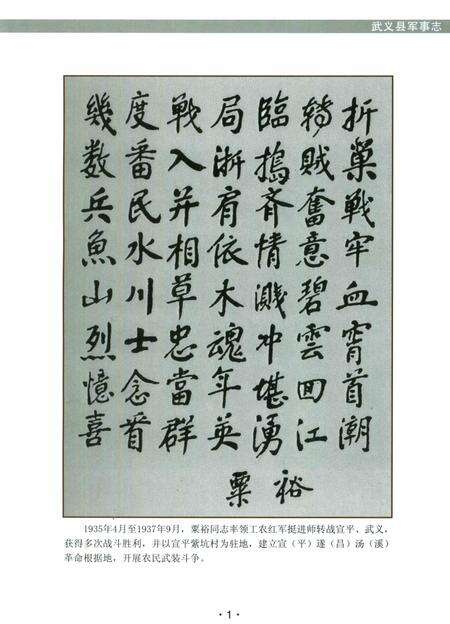 武义县军事志
幾度戰局臨轉折
数番入浙搗賊巢
兵民并肩齊奮戰
魚水相依情意牢
山川草木濺碧血
烈士忠魂冲雲宵
憶念當年堪回首
喜看群英湧江潮
粟裕
1935年4月至1937年9月，粟裕同志率领工农红军挺进师转战宣平、武义，
获得多次战斗胜利，并以宣平紫坑村为驻地，建立宣（平）遂（昌）汤（溪）
革命根据地，开展农民武装斗争。
·1·